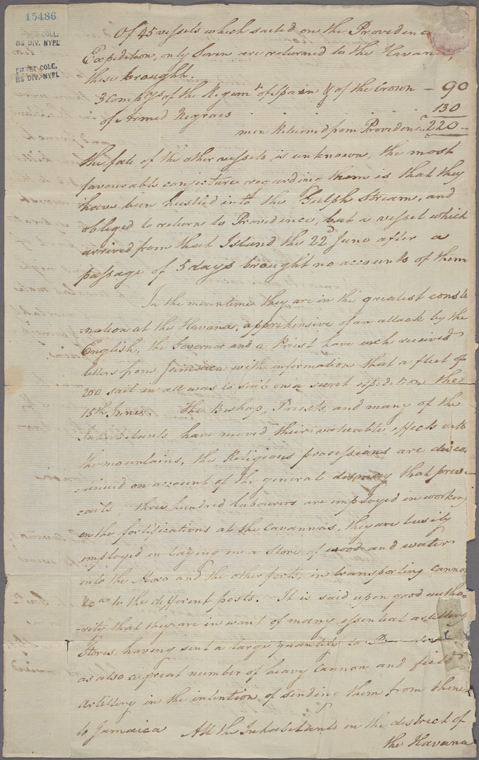 15486
Of 45 vessels which sailed on the Providence
Expedition, only Seven are returned to the Havana,
these brought.
3 Comp.ys of the Regim.t of Spain & of the Crown — 90
of armed Negroes 130
men Returned from Providence 220
the fate of the other vessels, is unknown, the most
favourable conjecture regarding them is that they
have been hustled into the Gulph Stream, and
obliged to return to Providence, but a vessel which
arrived from that Island the 22d June after a
passage of 5 days brought no accounts of them
In the meantime they are in the greatest conster
nation at the Havana, apprehensive of an attack by the
English, the Governor and a Priest have each received
letters from Jamaica with information that a fleet of
200 sail in all was to sail on a secret expedition the
15th June. The Bishop, Priests and many of the
Inhabitants have moved their valuable effects into
the mountains, the Religious processions are
on account of the general that
vails three hundred labourers are employed in working
on the fortifications at the Cavannas, they are busily
employed in laying in a Store of wood and water
into the Moro and the other forts, in transporting cannon
&ca to the different posts. It is said upon good autho
rity that they are in want of many essential artillery
Stores, having sent a large quantity to
as also a great number of heavy Cannon and field
artillery in the intention of sending them from thence
to Jamaica All the Inhabitants in the district of
the Havana